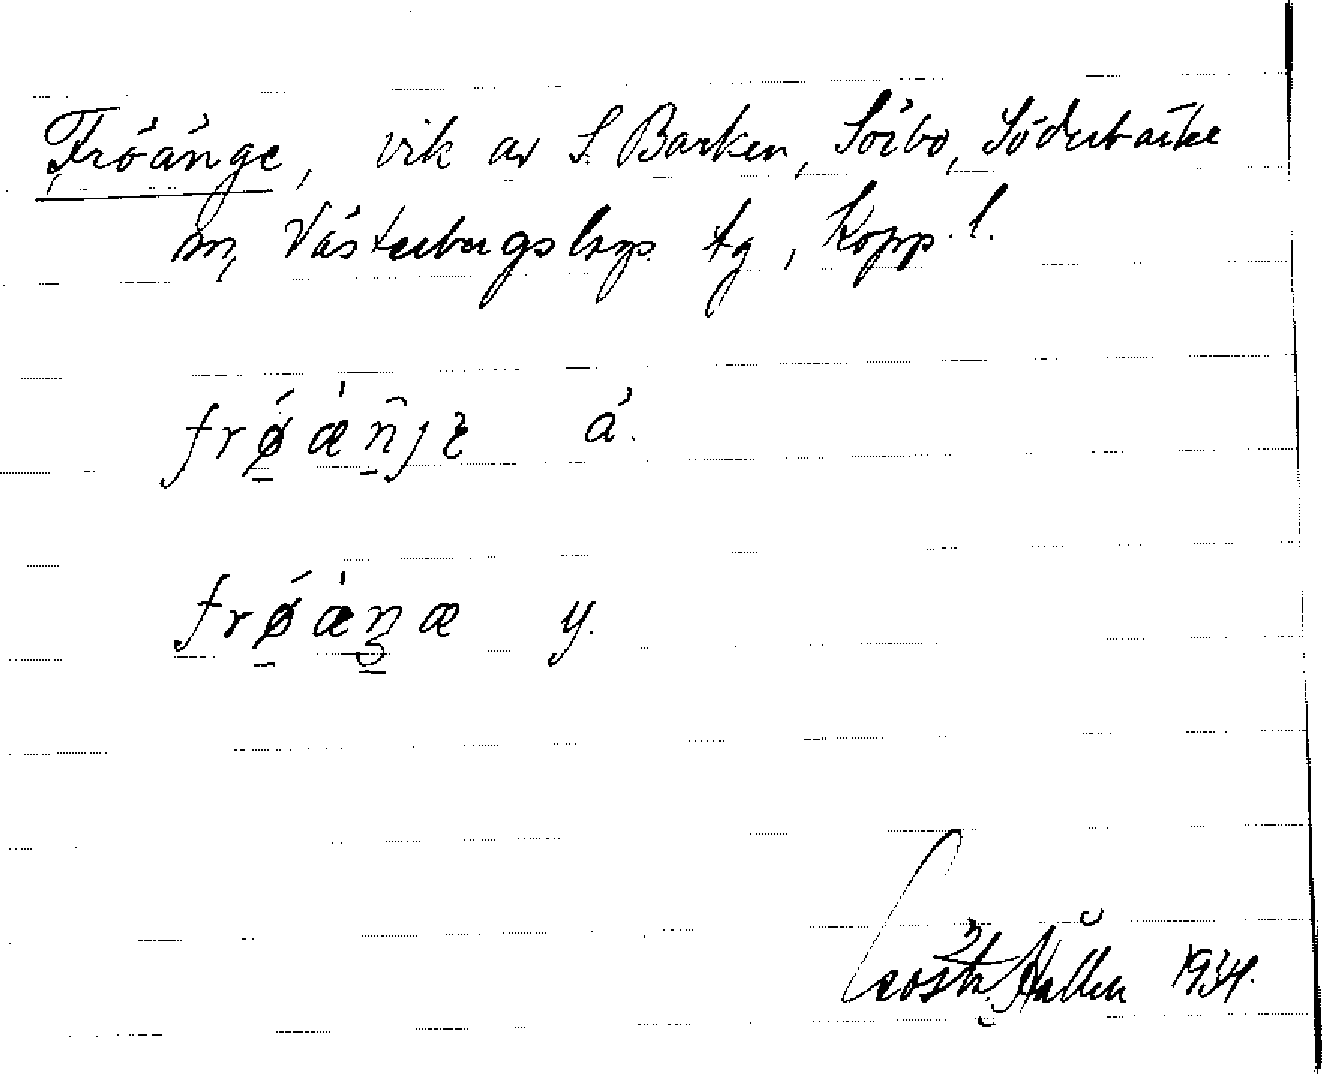 Fröänge, vik av S. Barken, Söibo, Söderbärke
sn, Västerbergslags tg, Kopp. l.
frǿ̱æ̀n̯̂jɛ ä.
frǿ̱æ̀ŋæ y.
Gösta Hallen 1934.